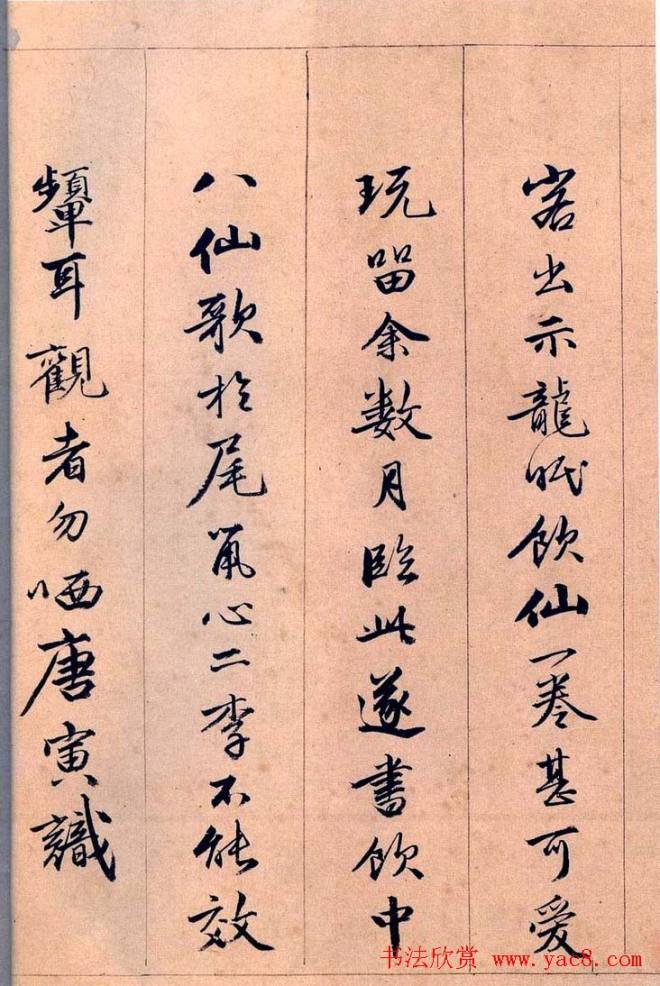 客出示龍眠飲仙一卷甚可愛
玩留余數月臨此遂書飲中
八仙歌於尾鼠心二李不能效
顰耳觀者勿哂唐寅識
书法欣赏 www.yac8.com